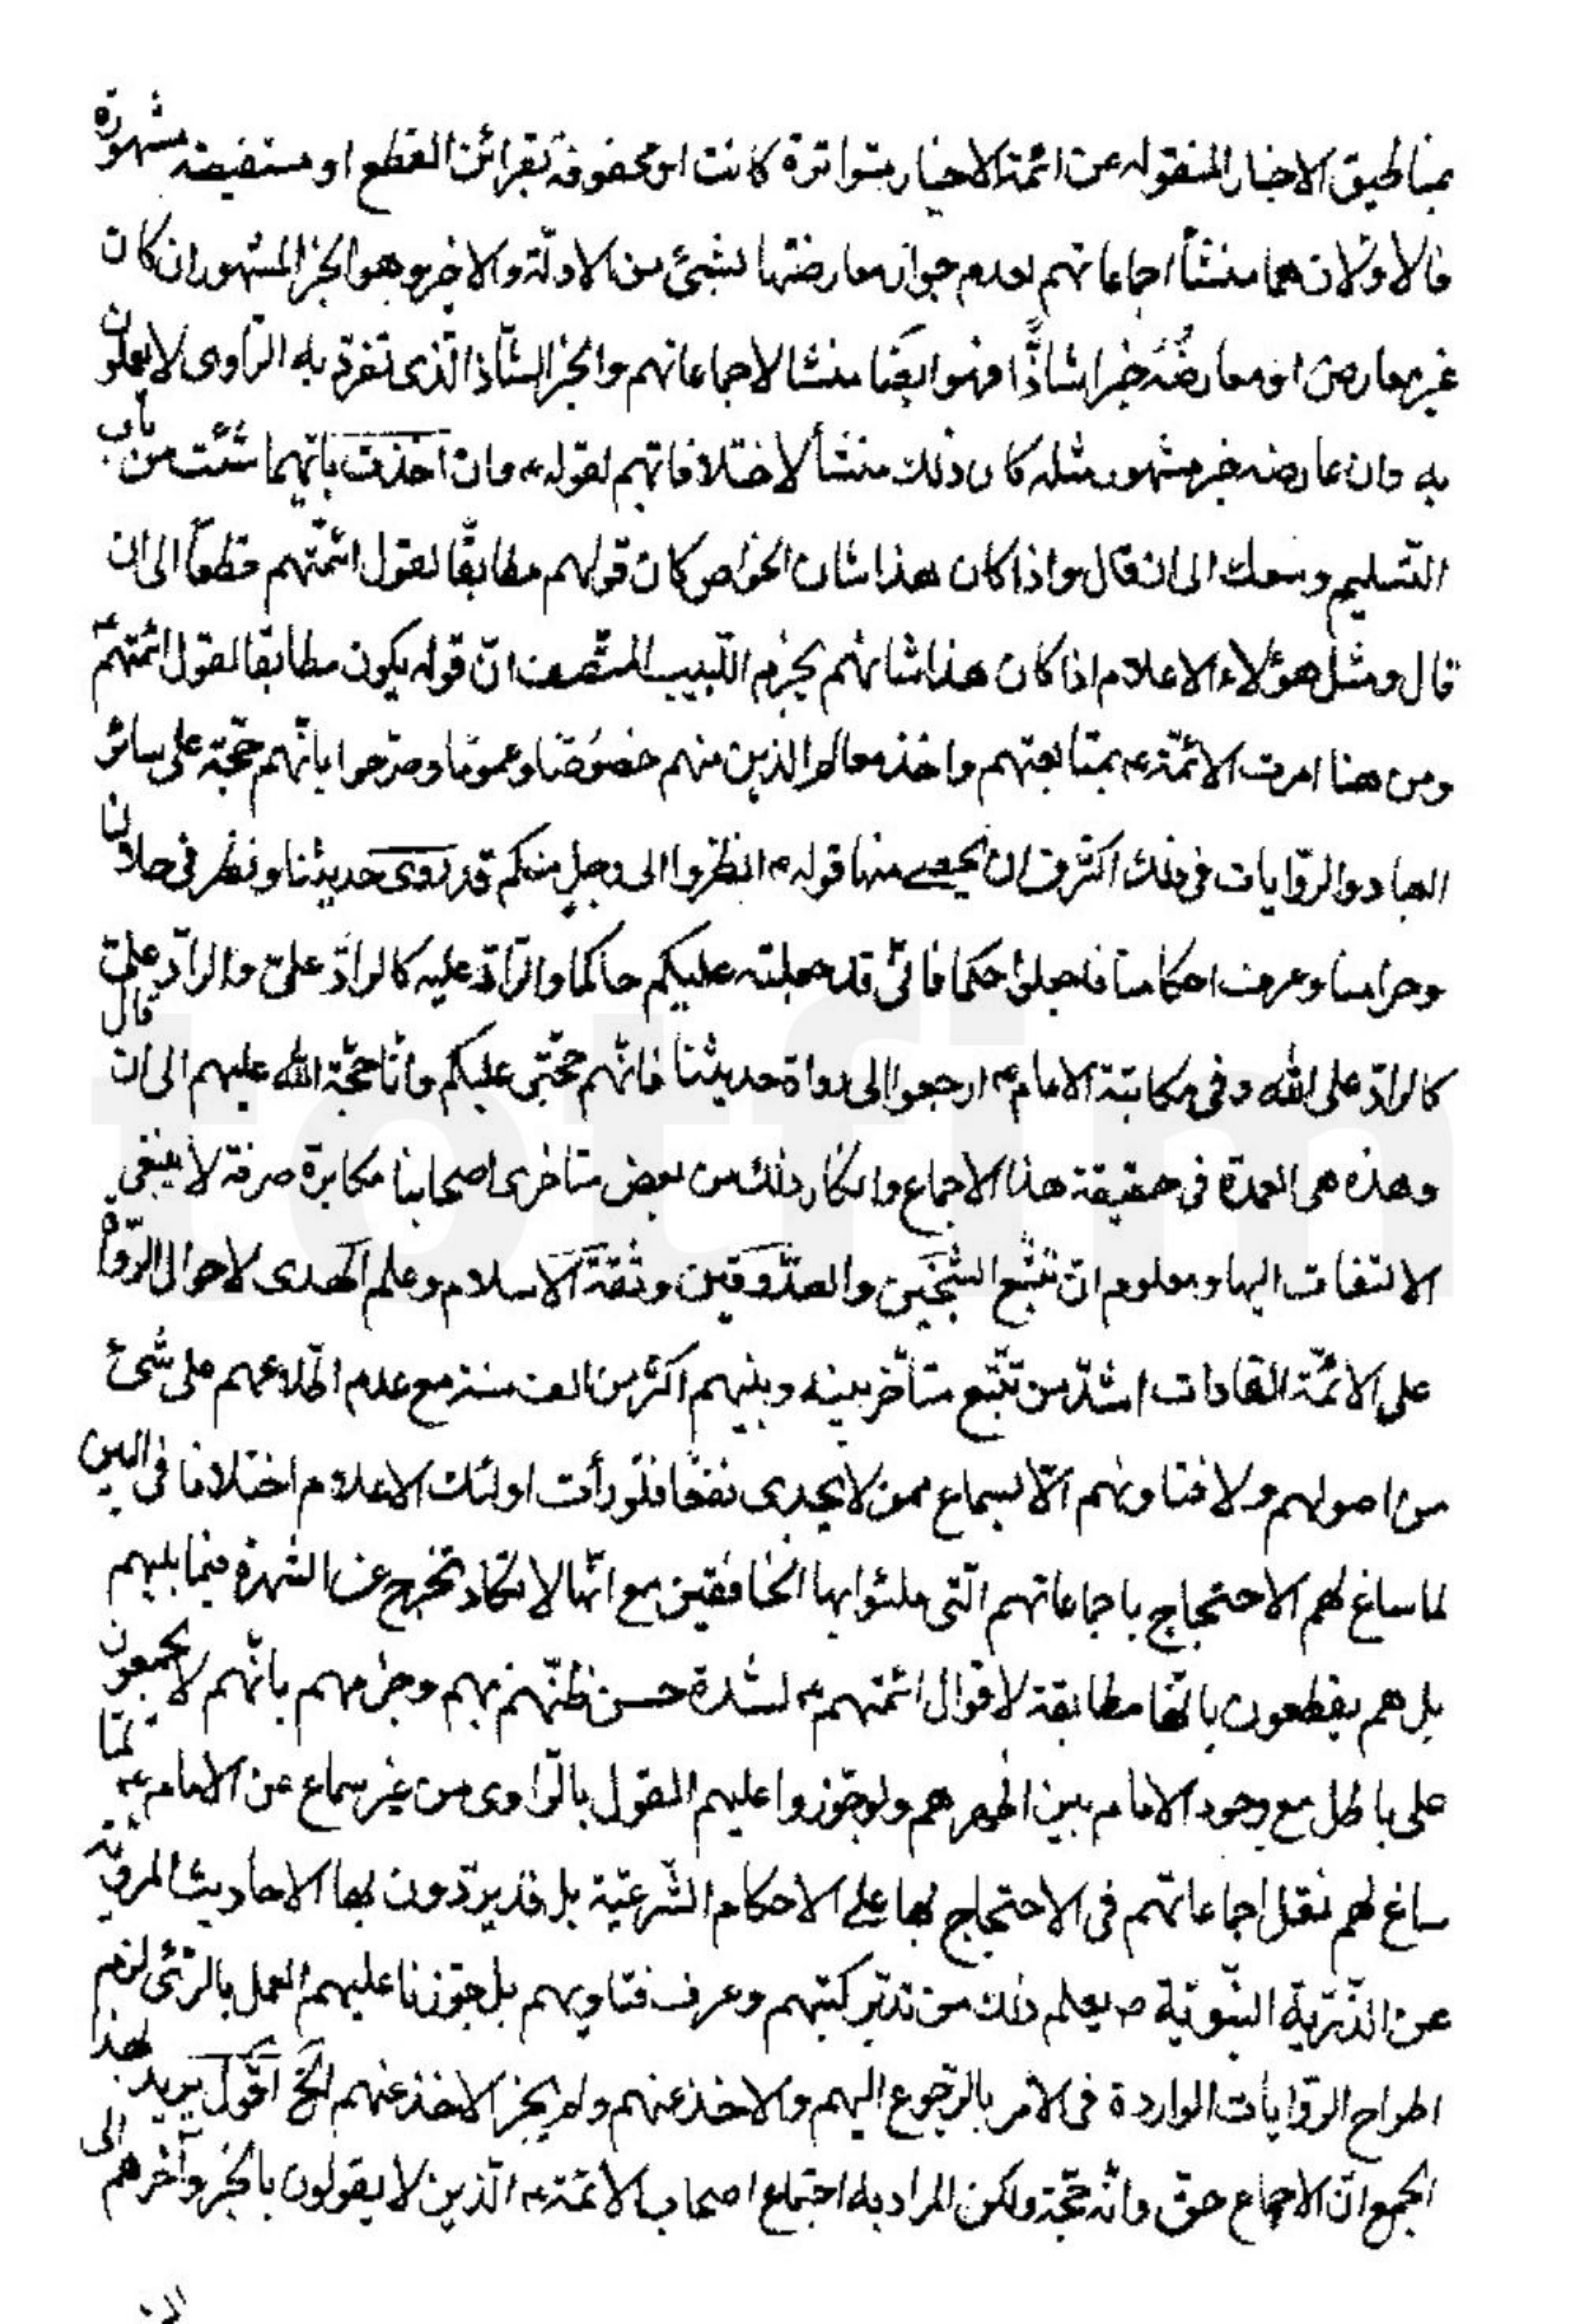 بمناطيق الاخبار المنقوله عن ائمة الاخيار متواترة كانت او محفوفة بقرائن القطع او مستفيضة مشهورة
فالاولان هما منشأ اجماعاتهم لعدم جواز معارضتها لشئ من الادلة والاخير وهو الخبر المشهور ان كان
غير معارض او معارضه خبرا شاذّا فهو ايضا منشا لاجماعاتهم والخبر الشاذ الّذى تفرّد به الرّاوى لا يعملون
به وان عارضه خبر مشهور مثله كان ذلك منشأ لاختلافاتهم لقوله ع وان اخذت بايّهما شئت من باب
التسليم وسعك الى ان قال واذا كان هذا شان الخواص كان قولهم مطابقًا لقول ائمّتهم قطعًا الى ان
قال ومثل هؤلاء الاعلام اذا كان هذا شانهم يجزم اللّبيب المنصف انّ قوله يكون مطابقا لقول ائمتهم ع
ومن هنا امرت الائمّة ع بمتابعتهم واخذ معالم الدين منهم خصوصًا وعمومًا وصرّحوا بانّهم حجّة على سائر
العباد والرّوايات فى ذلك اكثر من ان يحصى منها قوله ع انظروا الى رجل منكم قد روى حديثنا ونظر فى حلالنا
وحرامنا وعرف احكامنا فاجعلوه حكما فانّى قد جعلته عليكم حاكما والرّادّ عليه كالرادّ علىّ والرادّ علىّ
كالرادّ على الله وفى مكاتبة الامام ع ارجعوا الى رواة حديثنا فانّهم حجّتى عليكم وانا حجّة الله عليهم الى ان قال
وهذه هى العمدة فى حقيقة هذا الاجماع وانكار ذلك من بعض متاخرى اصحابنا مكابرة صرفة لا ينبغى
الالتفات اليها ومعلوم انّ تتبّع الشيخين والصدّوقين وثقة الاسلام وعلم الهدى لاحوال الرّواة
على الائمّة القادات اشدّ من تتبّع متأخّر بينه وبينهم اكثر من الف سنة مع عدم اطّلاعهم على شئ
من اصولهم ولا فتاويهم الّا بسماع ممن لا يجدى نفعًا فلو رأت اولئك الاعلام اختلافا فى البين
لما ساغ لهم الاحتجاج باجماعاتهم الّتى ملئوا بها الخافقين مع انّها لا تكاد تخرج عن الشهرة فيما بينهم
بل هم يقطعون بانّها مطابقة لاقوال ائمتهم ع لشدة حسن ظنّهم بهم وجزمهم بانّهم لا يجمعون
على باطل مع وجود الامام بين اظهرهم ولو جوّزوا عليهم القول بالرّاوى من غير سماع عن الامام ع لما
ساغ لهم نقل اجماعاتهم فى الاحتجاج بها على الاحكام الشّرعيّة بل قد يردّون بها الاحاديث المرويّة
عن الذّرّية النّبويّة ص يعلم ذلك من تدبّر كتبهم وعرف فتاويهم بل جوّزنا عليهم العمل بالرّئى لزم
اطراح الرّوايات الواردة فى الامر بالرّجوع اليهم والاخذ عنهم ولم يجز الاخذ عنهم الخ اقول يريد بهذا
الجمع انّ الاجماع حق وانّه حجّة ولكن المراد به اجتماع اصحاب الائمّة ع الّذين لا يقولون بالخبر وآخرهم الى